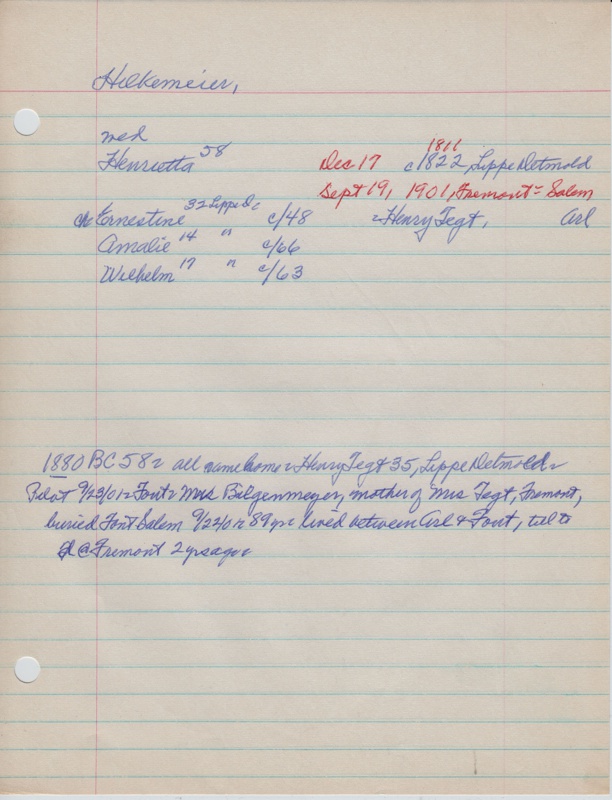 Hilkemeier,
wed
Henrietta 58 Dec 17 1811 c 1822, Lippe Detmold
Sept 19, 1901, Fremont - Salem
ch Ernestine 32 Lippe D. c/48 = Henry Tegt, Arl
Amalie 14 " c/66
Wilhelm 17 " c/63
1880 BC 58 = all same home = Henry Tegt 35, Lippe Detmold =
Pilot 9/23/01 = Font = Mrs Bilgenmeyer, mother of Mrs Tegt, Fremont,
buried Font Salem 9/22/01 = 89 yrs lived between Arl & Font, till to
@ Fremont 2 yrs ago =